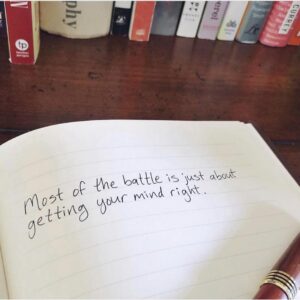 tp
Most of the battle is just about
getting your mind right.